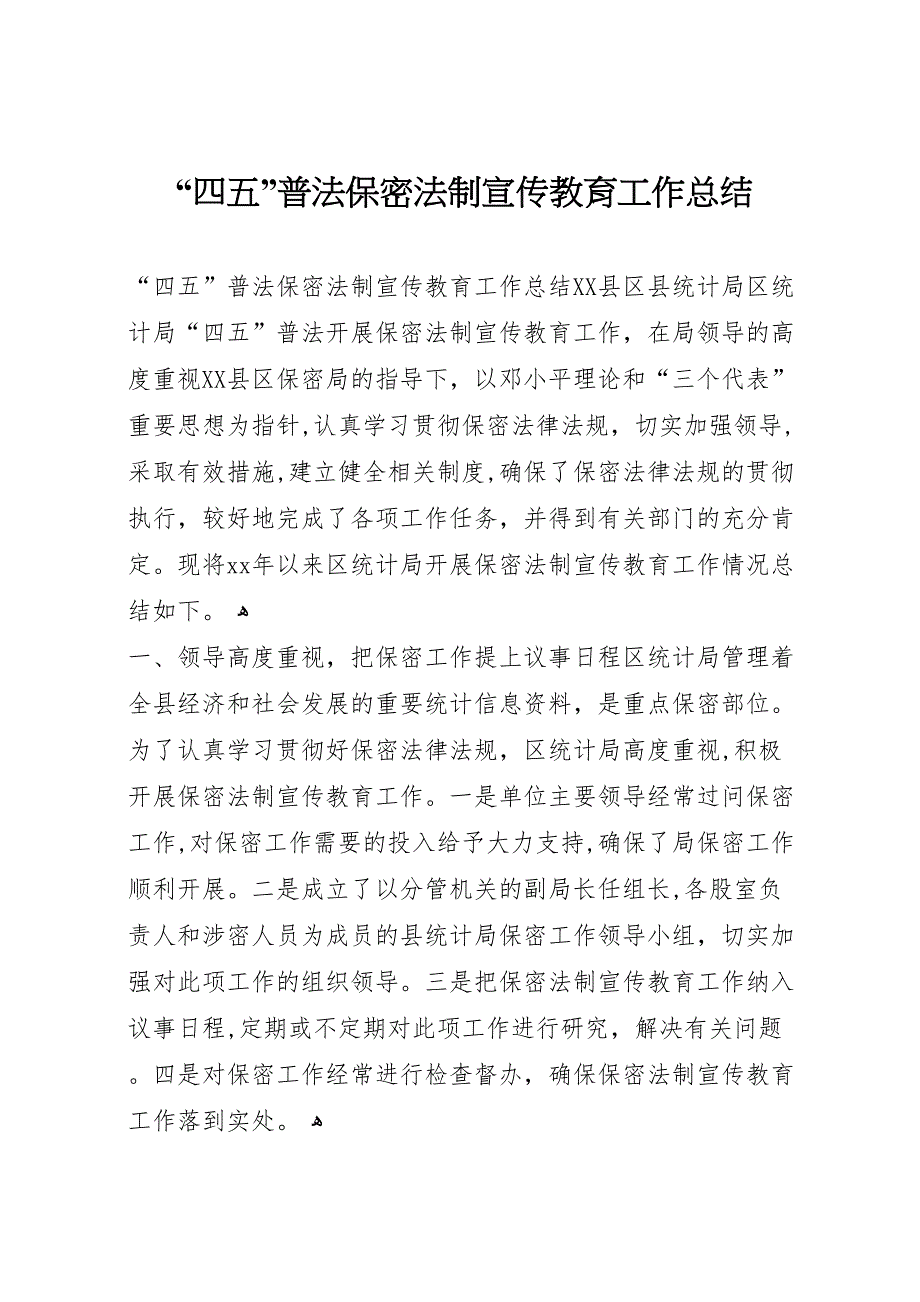 “四五”普法保密法制宣传教育工作总结
“四五”普法保密法制宣传教育工作总结XX县区县统计局区统
计局“四五”普法开展保密法制宣传教育工作，在局领导的高
度重视XX县区保密局的指导下，以邓小平理论和“三个代表”
重要思想为指针,认真学习贯彻保密法律法规，切实加强领导,
采取有效措施,建立健全相关制度,确保了保密法律法规的贯彻
执行，较好地完成了各项工作任务，并得到有关部门的充分肯
定。现将xx年以来区统计局开展保密法制宣传教育工作情况总
结如下。 ﻫ
一、领导高度重视，把保密工作提上议事日程区统计局管理着
全县经济和社会发展的重要统计信息资料，是重点保密部位。
为了认真学习贯彻好保密法律法规，区统计局高度重视,积极
开展保密法制宣传教育工作。一是单位主要领导经常过问保密
工作,对保密工作需要的投入给予大力支持,确保了局保密工作
顺利开展。二是成立了以分管机关的副局长任组长,各股室负
责人和涉密人员为成员的县统计局保密工作领导小组，切实加
强对此项工作的组织领导。三是把保密法制宣传教育工作纳入
议事日程,定期或不定期对此项工作进行研究，解决有关问题
。四是对保密工作经常进行检查督办，确保保密法制宣传教育
工作落到实处。 ﻫ